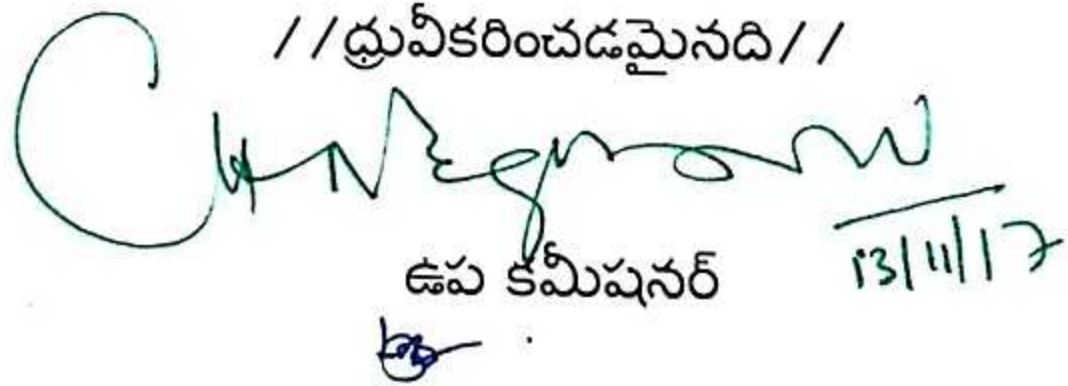 //ధ్రువీకరించడమైనది//
13/11/17
ఉప కమీషనర్